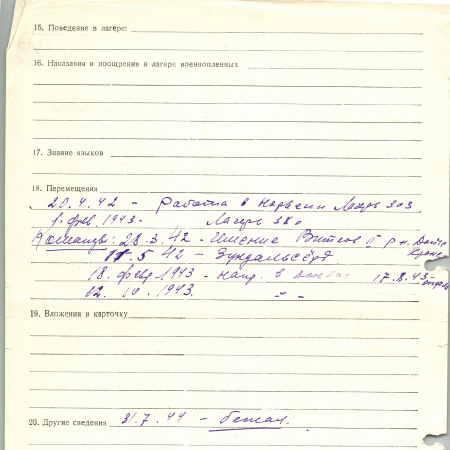 15. Поведение в лагере:
16. Наказания и поощрения в лагере военнопленных
17. Знание языков
18. Перемещения
20.4.42 - Работа в Норвегии Лагерь 303
1. фев. 1943 - Лагерь 380
Команды: 28.3.42 - Имение II р-н. Дойче
17.5.42 - Зундальсёрд Кроне
18. февр 1943 - напр. в 17.8.43 -
12. 10 1943. " -
19. Вложения в карточку
20. Другие сведения 31.7.44 - бежал.